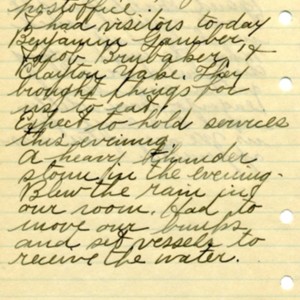 postoffice.
I had visitors to-day
Benjamin Garber,
Jacob Brubaker, &
Clayton Yake. They
brought things for
us to eat.
Expect to hold services
this evening.
A heavy thunder
storm in the evening.
Blew the rain in
our room. Had to
move our bunks
and set vessels to
receive the water.